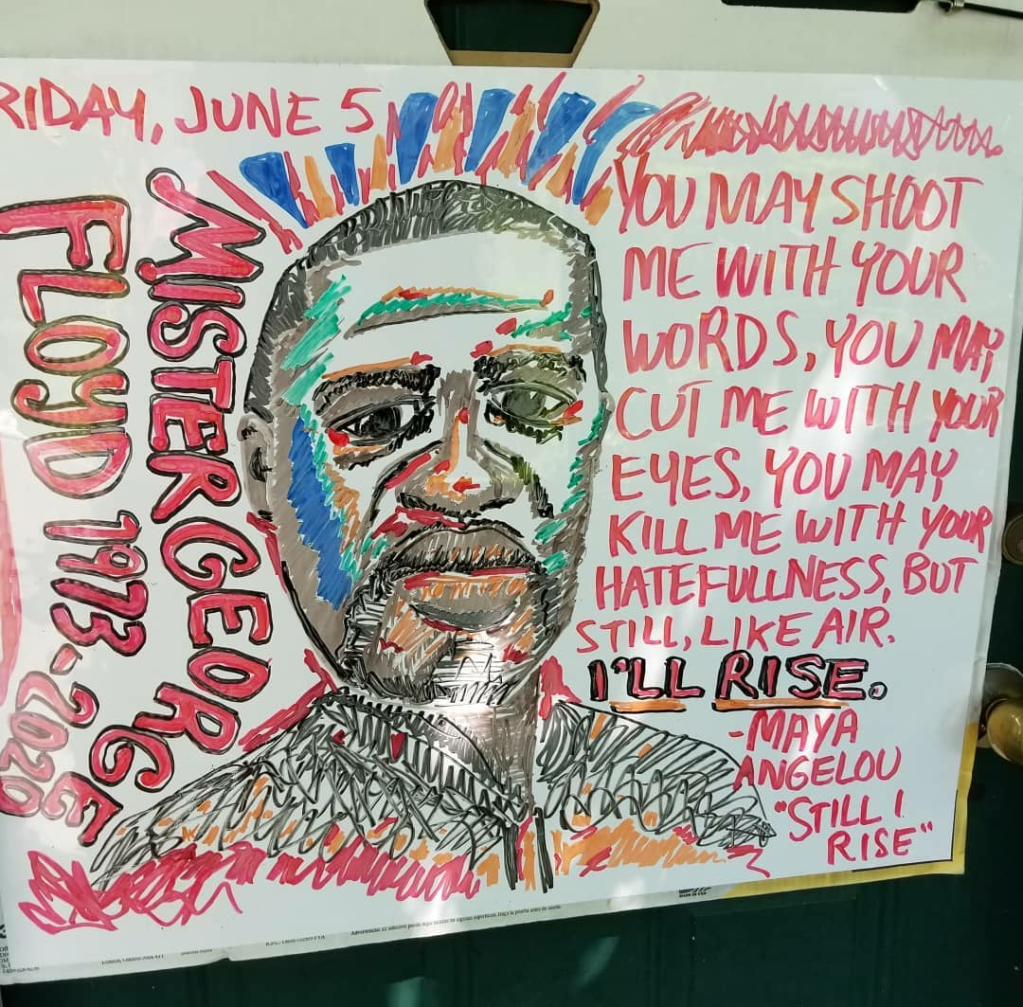 RIDAY, JUNE 5
MISTER GEORGE
FLOYD 1973-2020
YOU MAY SHOOT
ME WITH YOUR
WORDS, YOU MAY
CUT ME WITH YOUR
EYES, YOU MAY
KILL ME WITH YOUR
HATEFULLNESS, BUT
STILL, LIKE AIR.
I'LL RISE.
-MAYA
ANGELOU
"STILL I
RISE"